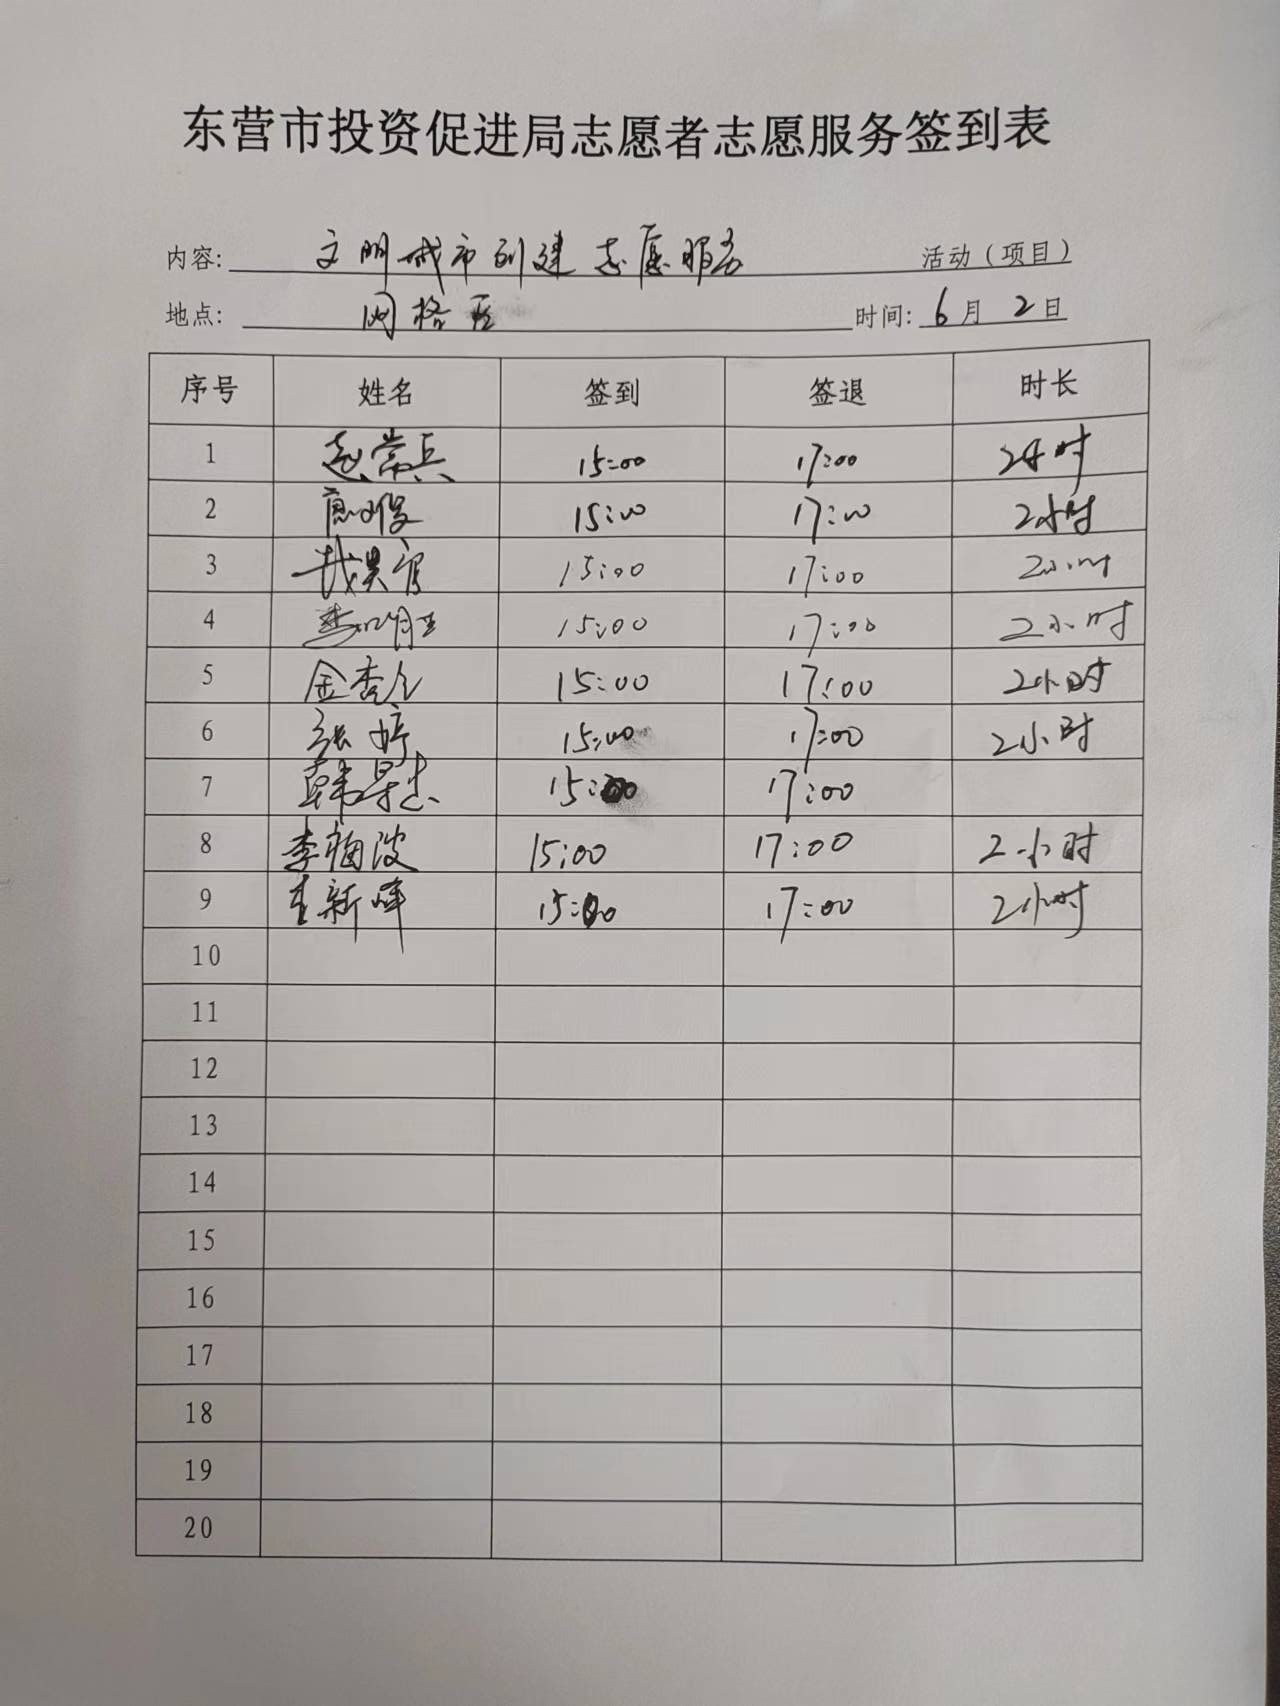 东营市投资促进局志愿者志愿服务签到表
内容: 文明城市创建志愿服务 活动（项目）
地点: 网格区 时间: 6月2日
序号 姓名 签到 签退 时长
1 赵常兵 15:00 17:00 2小时
2 15:00 17:00 2小时
3 15:00 17:00 2小时
4 15:00 17:00 2小时
5 金秀 15:00 17:00 2小时
6 张婷 15:00 17:00 2小时
7 韩 15:00 17:00
8 李梅波 15:00 17:00 2小时
9 新峰 15:00 17:00 2小时
10
11
12
13
14
15
16
17
18
19
20